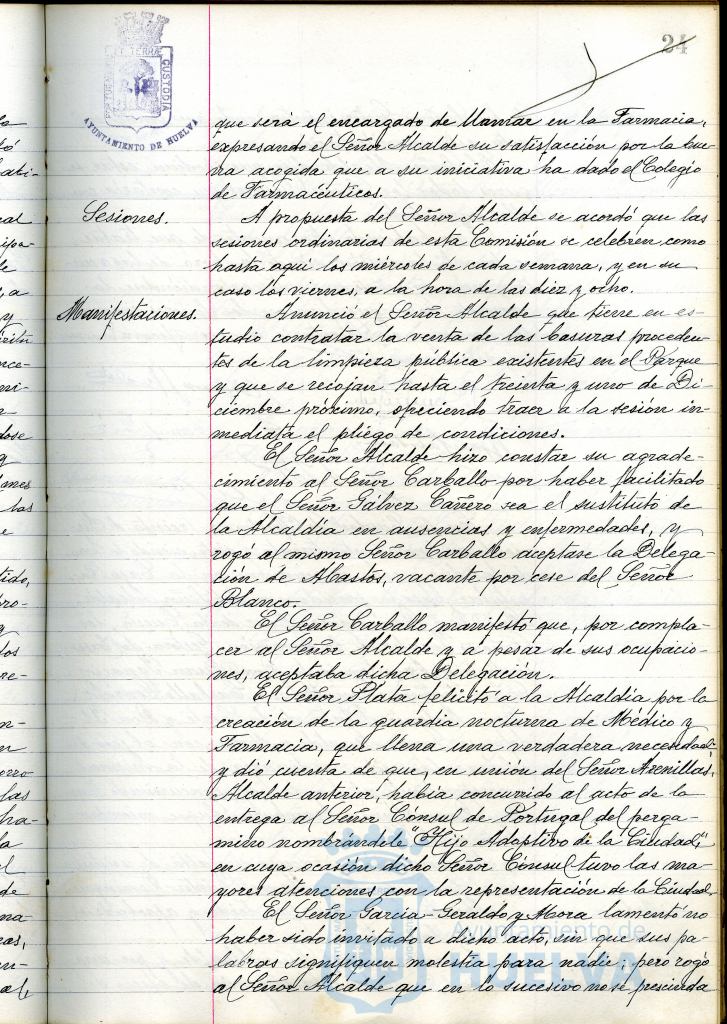 24
PORTUS MARIS ET TERRAE CUSTODIA
AYUNTAMIENTO DE HUELVA
que será el encargado de llamar en la Farmacia,
expresando el Señor Alcalde su satisfacción por la bue-
na acogida que a su iniciativa ha dado el Colegio
de Farmacéuticos.
Sesiones.
A propuesta del Señor Alcalde se acordó que las
sesiones ordinarias de esta Comisión se celebren como
hasta aquí los miércoles de cada semana, y en su
caso los viernes, a la hora de las diez y ocho.
Manifestaciones.
Anunció el Señor Alcalde que tiene en es-
tudio contratar la venta de las basuras proceden-
tes de la limpieza pública existentes en el Parque
y que se recojan hasta el treinta y uno de Di-
ciembre próximo, ofreciendo traer a la sesión in-
mediata el pliego de condiciones.
El Señor Alcalde hizo constar su agrade-
cimiento al Señor Carballo por haber facilitado
que el Señor Gálvez Cañero sea el sustituto de
la Alcaldía en ausencias y enfermedades, y
rogó al mismo Señor Carballo aceptase la Delega-
ción de Abastos, vacante por cese del Señor
Blanco.
El Señor Carballo manifestó que, por compla-
cer al Señor Alcalde y a pesar de sus ocupacio-
nes, aceptaba dicha Delegación.
El Señor Plata felicitó a la Alcaldía por la
creación de la guardia nocturna de Médico y
Farmacia, que llena una verdadera necesidad,
y dió cuenta de que, en unión del Señor Arenillas,
Alcalde anterior, había concurrido al acto de la
entrega al Señor Cónsul de Portugal del perga-
mino nombrándole "Hijo Adoptivo de la Ciudad,"
en cuya ocasión dicho Señor Cónsul tuvo las ma-
yores atenciones con la representación de la Ciudad.
El Señor García-Geraldo y Mora lamentó no
haber sido invitado a dicho acto, sin que sus pa-
labras signifiquen molestia para nadie; pero rogó
al Señor Alcalde que en lo sucesivo no se prescinda
Ayuntamiento de
HUELVA